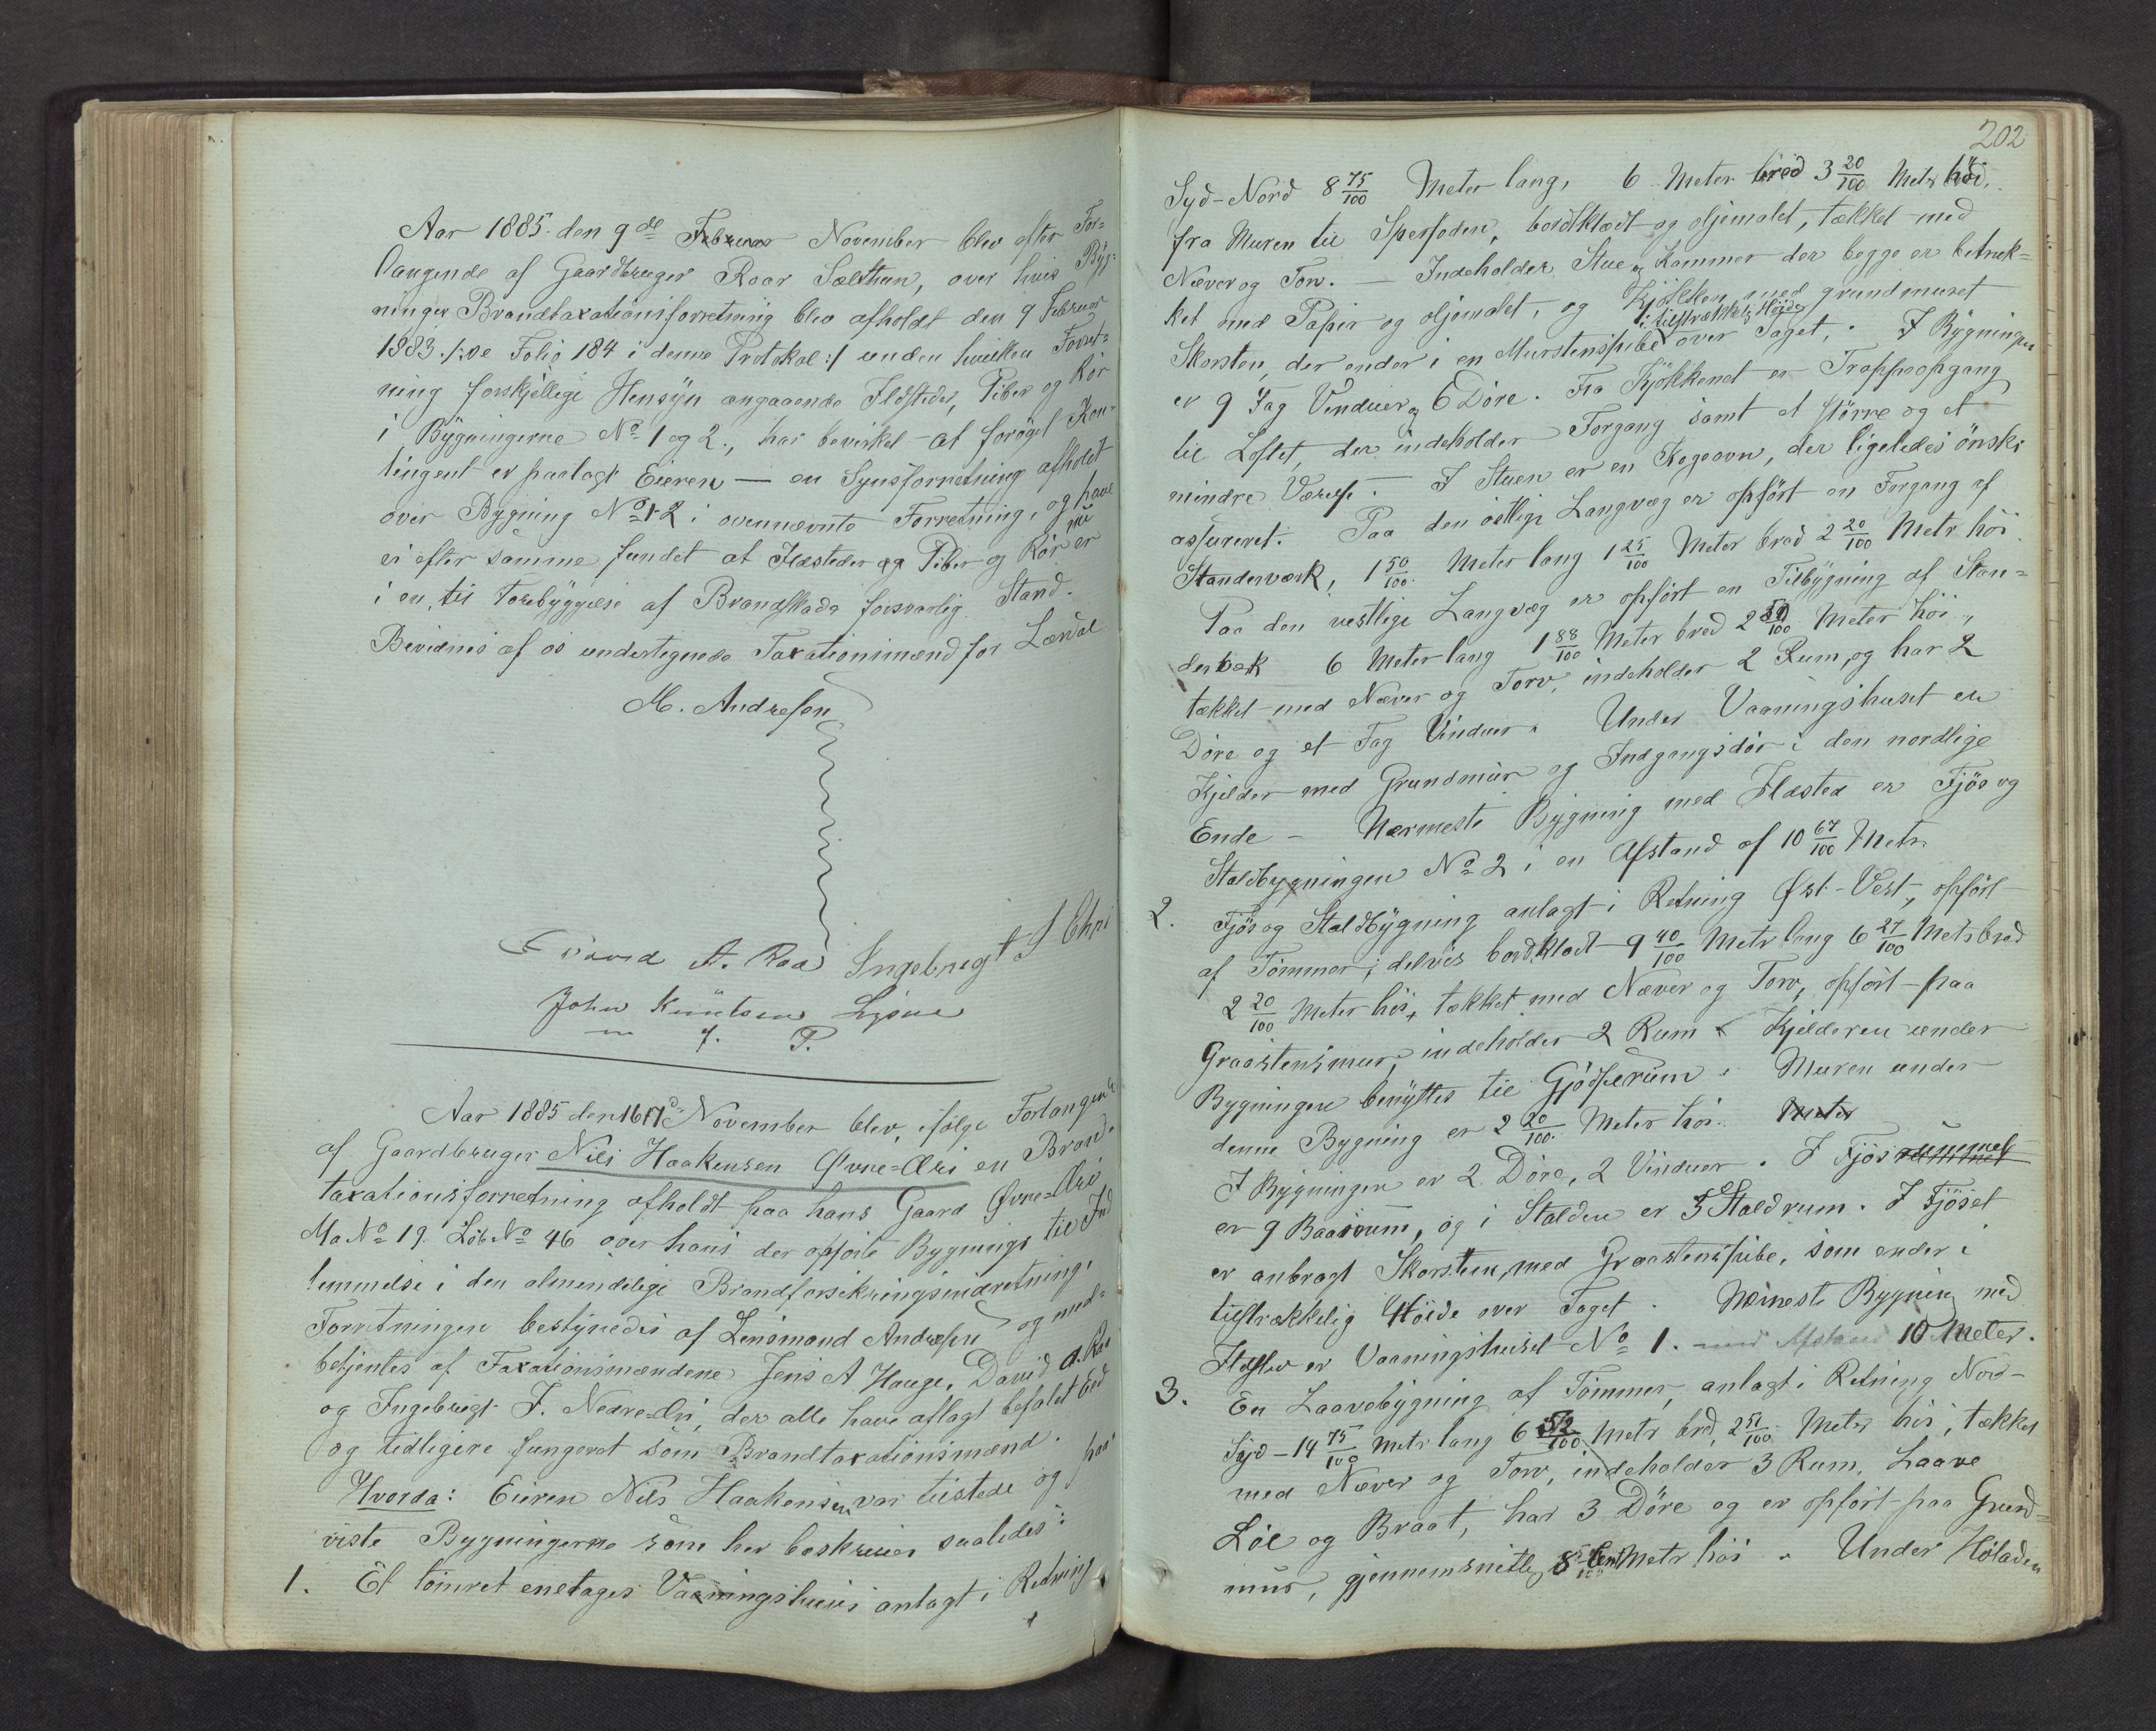 Aar 1885. den 9de Februar November blev efter For-
langende af Gaardbruger Roar Sælthun, over hvis Byg-
ninger Brandtaxationsforretning blev afholdt den 9 Februar
1883 /: se Folio 184 i denne Protokol :/ under hvilken Forret-
ning forskjellige Hensyn angaaende Ildsteder, Piber og Rör
i Bygningerne No 1 og 2., har bevirket at foröget Kon-
tingent er paalagt Eieren — en Synsforretning afholdt
over Bygning No 1-2 i ovennævnte Forretning, og have
vi efter samme fundet at Ildsteder og Piber og Rör nu er
i en, til Forebyggelse af Brandskade forsvarlig Stand.
Bevidnes af os undertegnede Taxationsmænd for Lærdal
M. Andresen
David A. Raa Ingebrigt J Chri
John Knutsen Ljøsne
m. f. P.
Aar 1885 den 16/17de November blev, ifølge Forlangende
af Gaardbruger Nils Haakensen Øvre-Æri en Brand-
taxationsforretning afholdt paa hans Gaard Øvre-Æri
Ma No 19. Löb No 46 over hans der opförte Bygninger til Ind
lemmelse i den almindelige Brandforsikringsindretning.
Forretningen bestyredes af Lensmand Andresen og med-
betjentes af Taxationsmændene Jens A Hauge, David A. Raa
og Ingebrigt J. Nedre-Æri, der alle have aflagt befalet Eed
og tidligere fungeret som Brandtaxationsmænd.
Hvorda: Eieren Nils Haakensen var tilstede og paa-
viste Bygningerne som her beskrives saaledes:
1. Et tömret enetages Vaaningshuus anlagt i Retning
202
Syd-Nord 8 75/100 Meter lang, 6 Meter bred 3 20/100 Meter höi,
fra Muren til Sperfoden, bordklædt og oljemalet, tækket med
Næver og Torv. — Indeholder Stue og Kammer der begge er betræk-
ket med Papir og oljemalet, og Kjökken med grundmuret
i tilstrækkelig Höide
Skorsten, der ender i en Murstenspibe over Taget. I Bygningen
er 9 Fag Vinduer og 6 Döre. Fra Kjökkenet er Trappeopgang
til Loftet, der indeholder Forgang samt et större og et
mindre Værelse. — I Stuen er en Kogeovn, der ligeledes önskes
assureret. Paa den östlige Langvæg er opfört en Forgang af
Standerværk, 1 50/100 Meter lang 1 25/100 Meter bred 2 20/100 Meter höi.
Paa den vestlige Langvæg er opfört en Tilbygning af Stan-
derværk 6 Meter lang 1 88/100 Meter bred 2 50/100 Meter höi,
tækket med Næver og Torv, indeholder 2 Rum, og har 2
Döre og et Fag Vinduer. Under Vaaningshuset er
Kjelder med Grundmur og Indgangsdör i den nordlige
Ende — Nærmeste Bygning med Ildsted er Fjös og
Staldbygningen No 2 i en Afstand af 10 67/100 Meter
2. Fjös og Staldbygning anlagt i Retning Øst-Vest, opfört
af Tömmer, delvis bordklædt 9 40/100 Meter lang 6 27/100 Meter bred
2 20/100 Meter höi, tækket med Næver og Torv, opfört paa
Graastensmur, indeholder 2 Rum. Kjelderen under
Bygningen benyttes til Gjödselrum. Muren under
denne Bygning er 2 20/100 Meter höi. Meter
I Bygningen er 2 Döre, 2 Vinduer. I Fjösrummet
er 9 Baasrum, og i Stalden er 3 Staldrum. I Fjöset
er anbragt Skorsten, med Graastenspibe, som ender i
tilstrækkelig Höide over Taget. Nærmeste Bygning med
Ildsted er Vaaningshuset No 1. med Afstand 10 Meter.
3. En Laavebygning af Tömmer, anlagt i Retning Nord-
Syd — 14 75/100 Meter lang 6 52/100 Meter bred, 2 51/100 Meter höi, tækket
med Næver og Torv, indeholder 3 Rum, Laave
Löe og Braat, har 3 Döre og er opfört paa Grund-
mur, gjennemsnitlig Meter höi. Under Höladen